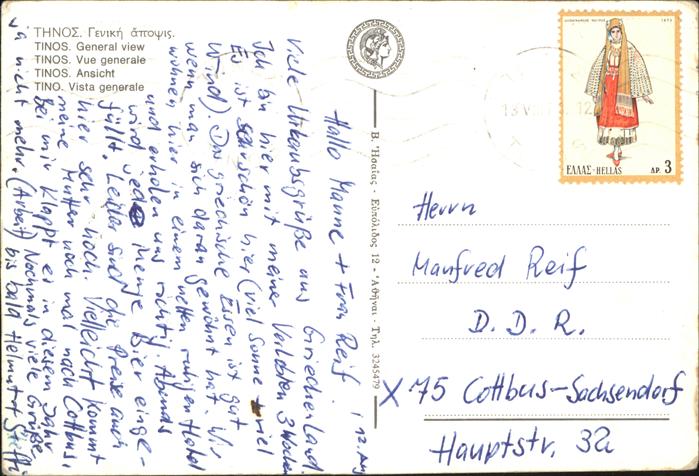 ΤΗΝΟΣ. Γενική ἄποψις.
TINOS. General view
TINOS. Vue generale
TINOS. Ansicht
TINO. Vista generale
Hallo Manne + Frau Reif!
12. Aug
Viele Urlaubsgrüße aus Griechenland.
Ich bin hier mit meiner Verlobten 3 Wochen
Es ist sehr schön hier (viel Sonne + viel
Wind). Das griechische Essen ist gut
wenn man sich daran gewöhnt hat. Wir
wohnen hier in einem netten ruhigen Hotel
und erholen uns richtig. Abends
wird jede Menge Bier einge-
füllt. Leider sind die Preise auch
hier sehr hoch. Vielleicht kommt
meine Mutter noch mal nach Cottbus,
bei mir klappt es in diesem Jahr
ja nicht mehr. (Arbeit) Nochmals viele Grüße
bis bald Helmut + Steffi
Β. Ἠσαΐας - Εὐπόλιδος 12 - Ἀθῆναι - Τηλ. 3245479
1972
ΕΛΛΑΣ-HELLAS
ΔΡ. 3
Herrn
Manfred Reif
D.D.R.
X 75 Cottbus-Sachsendorf
Hauptstr. 32